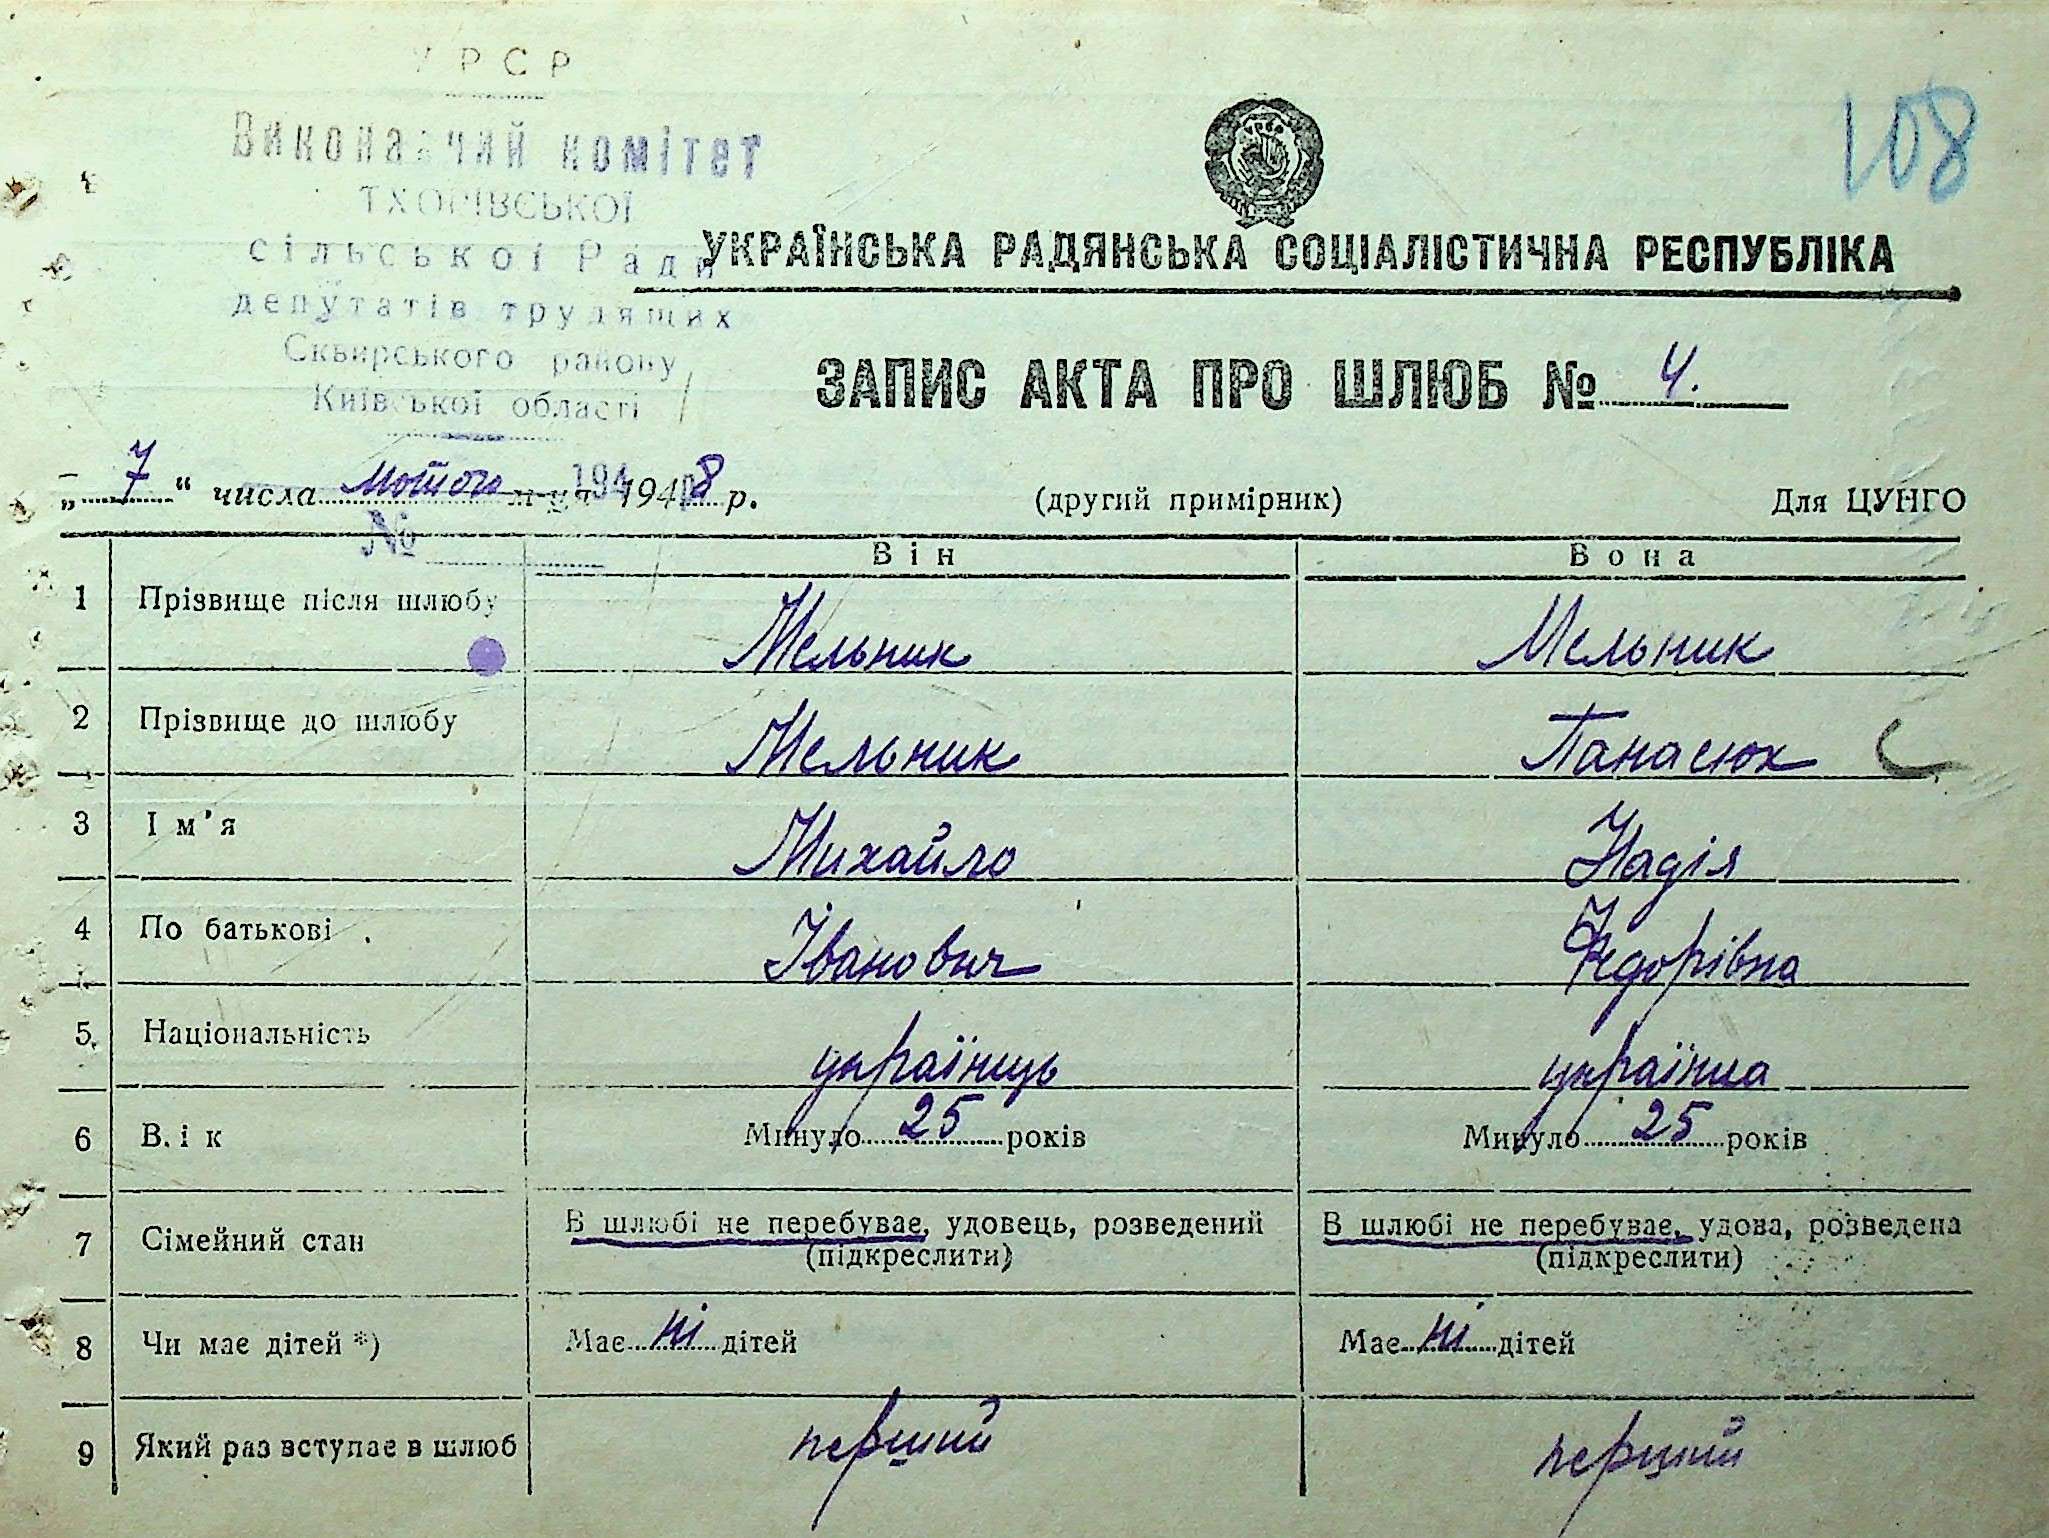 УРСР
Виконавчий комітет
ТХОРІВСЬКОЇ
сільської Ради
депутатів трудящих
Сквирського району
Київської області
194
№
108
УКРАЇНСЬКА РАДЯНСЬКА СОЦІАЛІСТИЧНА РЕСПУБЛІКА
ЗАПИС АКТА ПРО ШЛЮБ № 4.
„ 7 “ числа лютого м-ця 1948 р.
(другий примірник)
Для ЦУНГО
Він Вона
1 Прізвище після шлюбу Мельник Мельник
2 Прізвище до шлюбу Мельник Панасюк
3 Ім’я Михайло Надія
4 По батькові Іванович Федорівна
5 Національність українець українка
6 Вік Минуло 25 років Минуло 25 років
7 Сімейний стан В шлюбі не перебуває, удовець, розведений В шлюбі не перебуває, удова, розведена
(підкреслити) (підкреслити)
8 Чи має дітей *) Має ні дітей Має ні дітей
9 Який раз вступає в шлюб перший перший